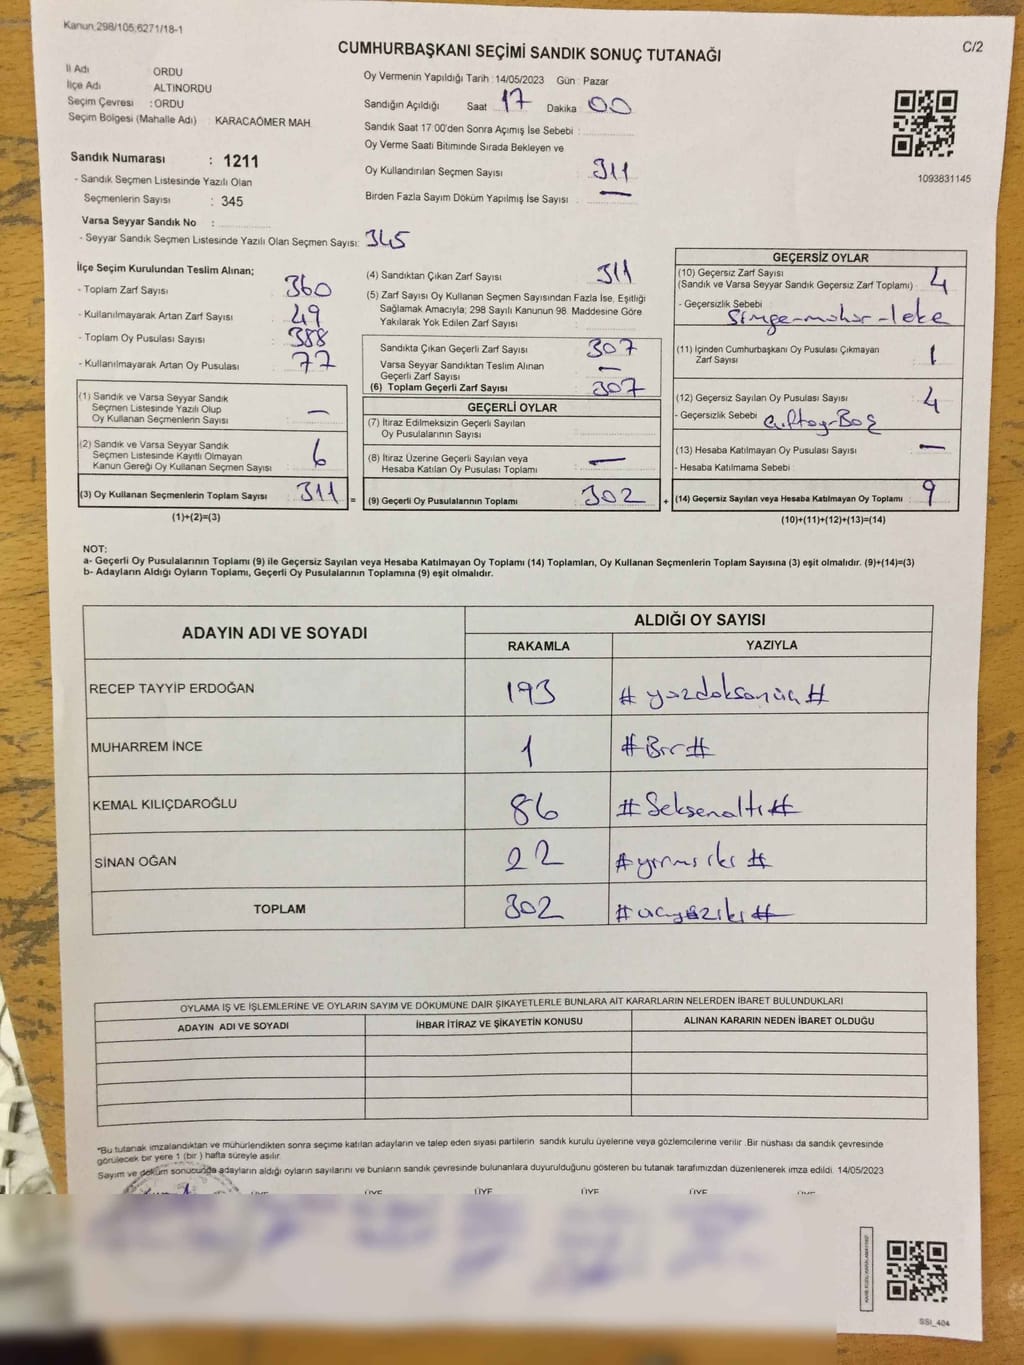 Kanun 298/105,6271/18-1
C/2
CUMHURBAŞKANI SEÇİMİ SANDIK SONUÇ TUTANAĞI
İl Adı ORDU
İlçe Adı ALTINORDU
Seçim Çevresi : ORDU
Seçim Bölgesi (Mahalle Adı) : KARACAÖMER MAH
Sandık Numarası : 1211
- Sandık Seçmen Listesinde Yazılı Olan
Seçmenlerin Sayısı : 345
Varsa Seyyar Sandık No :
- Seyyar Sandık Seçmen Listesinde Yazılı Olan Seçmen Sayısı: 345
Oy Vermenin Yapıldığı Tarih : 14/05/2023 Gün : Pazar
Sandığın Açıldığı Saat 17 Dakika 00
Sandık Saat 17 00'den Sonra Açımış İse Sebebi :
Oy Verme Saati Bitiminde Sırada Bekleyen ve
Oy Kullandırılan Seçmen Sayısı : 311
Birden Fazla Sayım Döküm Yapılmış İse Sayısı : —
1093831145
İlçe Seçim Kurulundan Teslim Alınan;
- Toplam Zarf Sayısı : 360
- Kullanılmayarak Artan Zarf Sayısı : 49
- Toplam Oy Pusulası Sayısı : 388
- Kullanılmayarak Artan Oy Pusulası : 77
(1) Sandık ve Varsa Seyyar Sandık
Seçmen Listesinde Yazılı Olup
Oy Kullanan Seçmenlerin Sayısı : —
(2) Sandık ve Varsa Seyyar Sandık
Seçmen Listesinde Kayıtlı Olmayan
Kanun Gereği Oy Kullanan Seçmen Sayısı : 6
(3) Oy Kullanan Seçmenlerin Toplam Sayısı : 311 =
(1)+(2)=(3)
(4) Sandıktan Çıkan Zarf Sayısı : 311
(5) Zarf Sayısı Oy Kullanan Seçmen Sayısından Fazla İse, Eşitliği
Sağlamak Amacıyla; 298 Sayılı Kanunun 98. Maddesine Göre
Yakılarak Yok Edilen Zarf Sayısı :
Sandıkta Çıkan Geçerli Zarf Sayısı : 307
Varsa Seyyar Sandıktan Teslim Alınan
Geçerli Zarf Sayısı : —
(6) Toplam Geçerli Zarf Sayısı : 307
GEÇERLİ OYLAR
(7) İtiraz Edilmeksizin Geçerli Sayılan
Oy Pusulalarının Sayısı :
(8) İtiraz Üzerine Geçerli Sayılan veya
Hesaba Katılan Oy Pusulası Toplamı : —
(9) Geçerli Oy Pusulalarının Toplamı : 302 +
GEÇERSİZ OYLAR
(10) Geçersiz Zarf Sayısı
(Sandık ve Varsa Seyyar Sandık Geçersiz Zarf Toplamı) : 4
- Geçersizlik Sebebi : Simge-mühür-leke
(11) İçinden Cumhurbaşkanı Oy Pusulası Çıkmayan
Zarf Sayısı : 1
(12) Geçersiz Sayılan Oy Pusulası Sayısı : 4
- Geçersizlik Sebebi : Çiftoy-Boş
(13) Hesaba Katılmayan Oy Pusulası Sayısı : —
- Hesaba Katılmama Sebebi :
(14) Geçersiz Sayılan veya Hesaba Katılmayan Oy Toplamı : 9
(10)+(11)+(12)+(13)=(14)
NOT:
a- Geçerli Oy Pusulalarının Toplamı (9) ile Geçersiz Sayılan veya Hesaba Katılmayan Oy Toplamı (14) Toplamları, Oy Kullanan Seçmenlerin Toplam Sayısına (3) eşit olmalıdır. (9)+(14)=(3)
b- Adayların Aldığı Oyların Toplamı, Geçerli Oy Pusulalarının Toplamına (9) eşit olmalıdır.
ADAYIN ADI VE SOYADI ALDIĞI OY SAYISI
RAKAMLA YAZIYLA
RECEP TAYYİP ERDOĞAN 193 # yüzdoksanüç #
MUHARREM İNCE 1 # Bir #
KEMAL KILIÇDAROĞLU 86 # Seksenaltı #
SİNAN OĞAN 22 # yirmi iki #
TOPLAM 302 # üçyüziki #
OYLAMA İŞ VE İŞLEMLERİNE VE OYLARIN SAYIM VE DÖKÜMÜNE DAİR ŞİKAYETLERLE BUNLARA AİT KARARLARIN NELERDEN İBARET BULUNDUKLARI
ADAYIN ADI VE SOYADI İHBAR İTİRAZ VE ŞİKAYETİN KONUSU ALINAN KARARIN NEDEN İBARET OLDUĞU
*Bu tutanak imzalandıktan ve mühürlendikten sonra seçime katılan adayların ve talep eden siyasi partilerin sandık kurulu üyelerine veya gözlemcilerine verilir .Bir nüshası da sandık çevresinde
görülecek bir yere 1 (bir ) hafta süreyle asılır.
Sayım ve döküm sonucunda adayların aldığı oyların sayılarını ve bunların sandık çevresinde bulunanlara duyurulduğunu gösteren bu tutanak tarafımızdan düzenlenerek imza edildi. 14/05/2023
ÜYE ÜYE ÜYE ÜYE
SSI_404